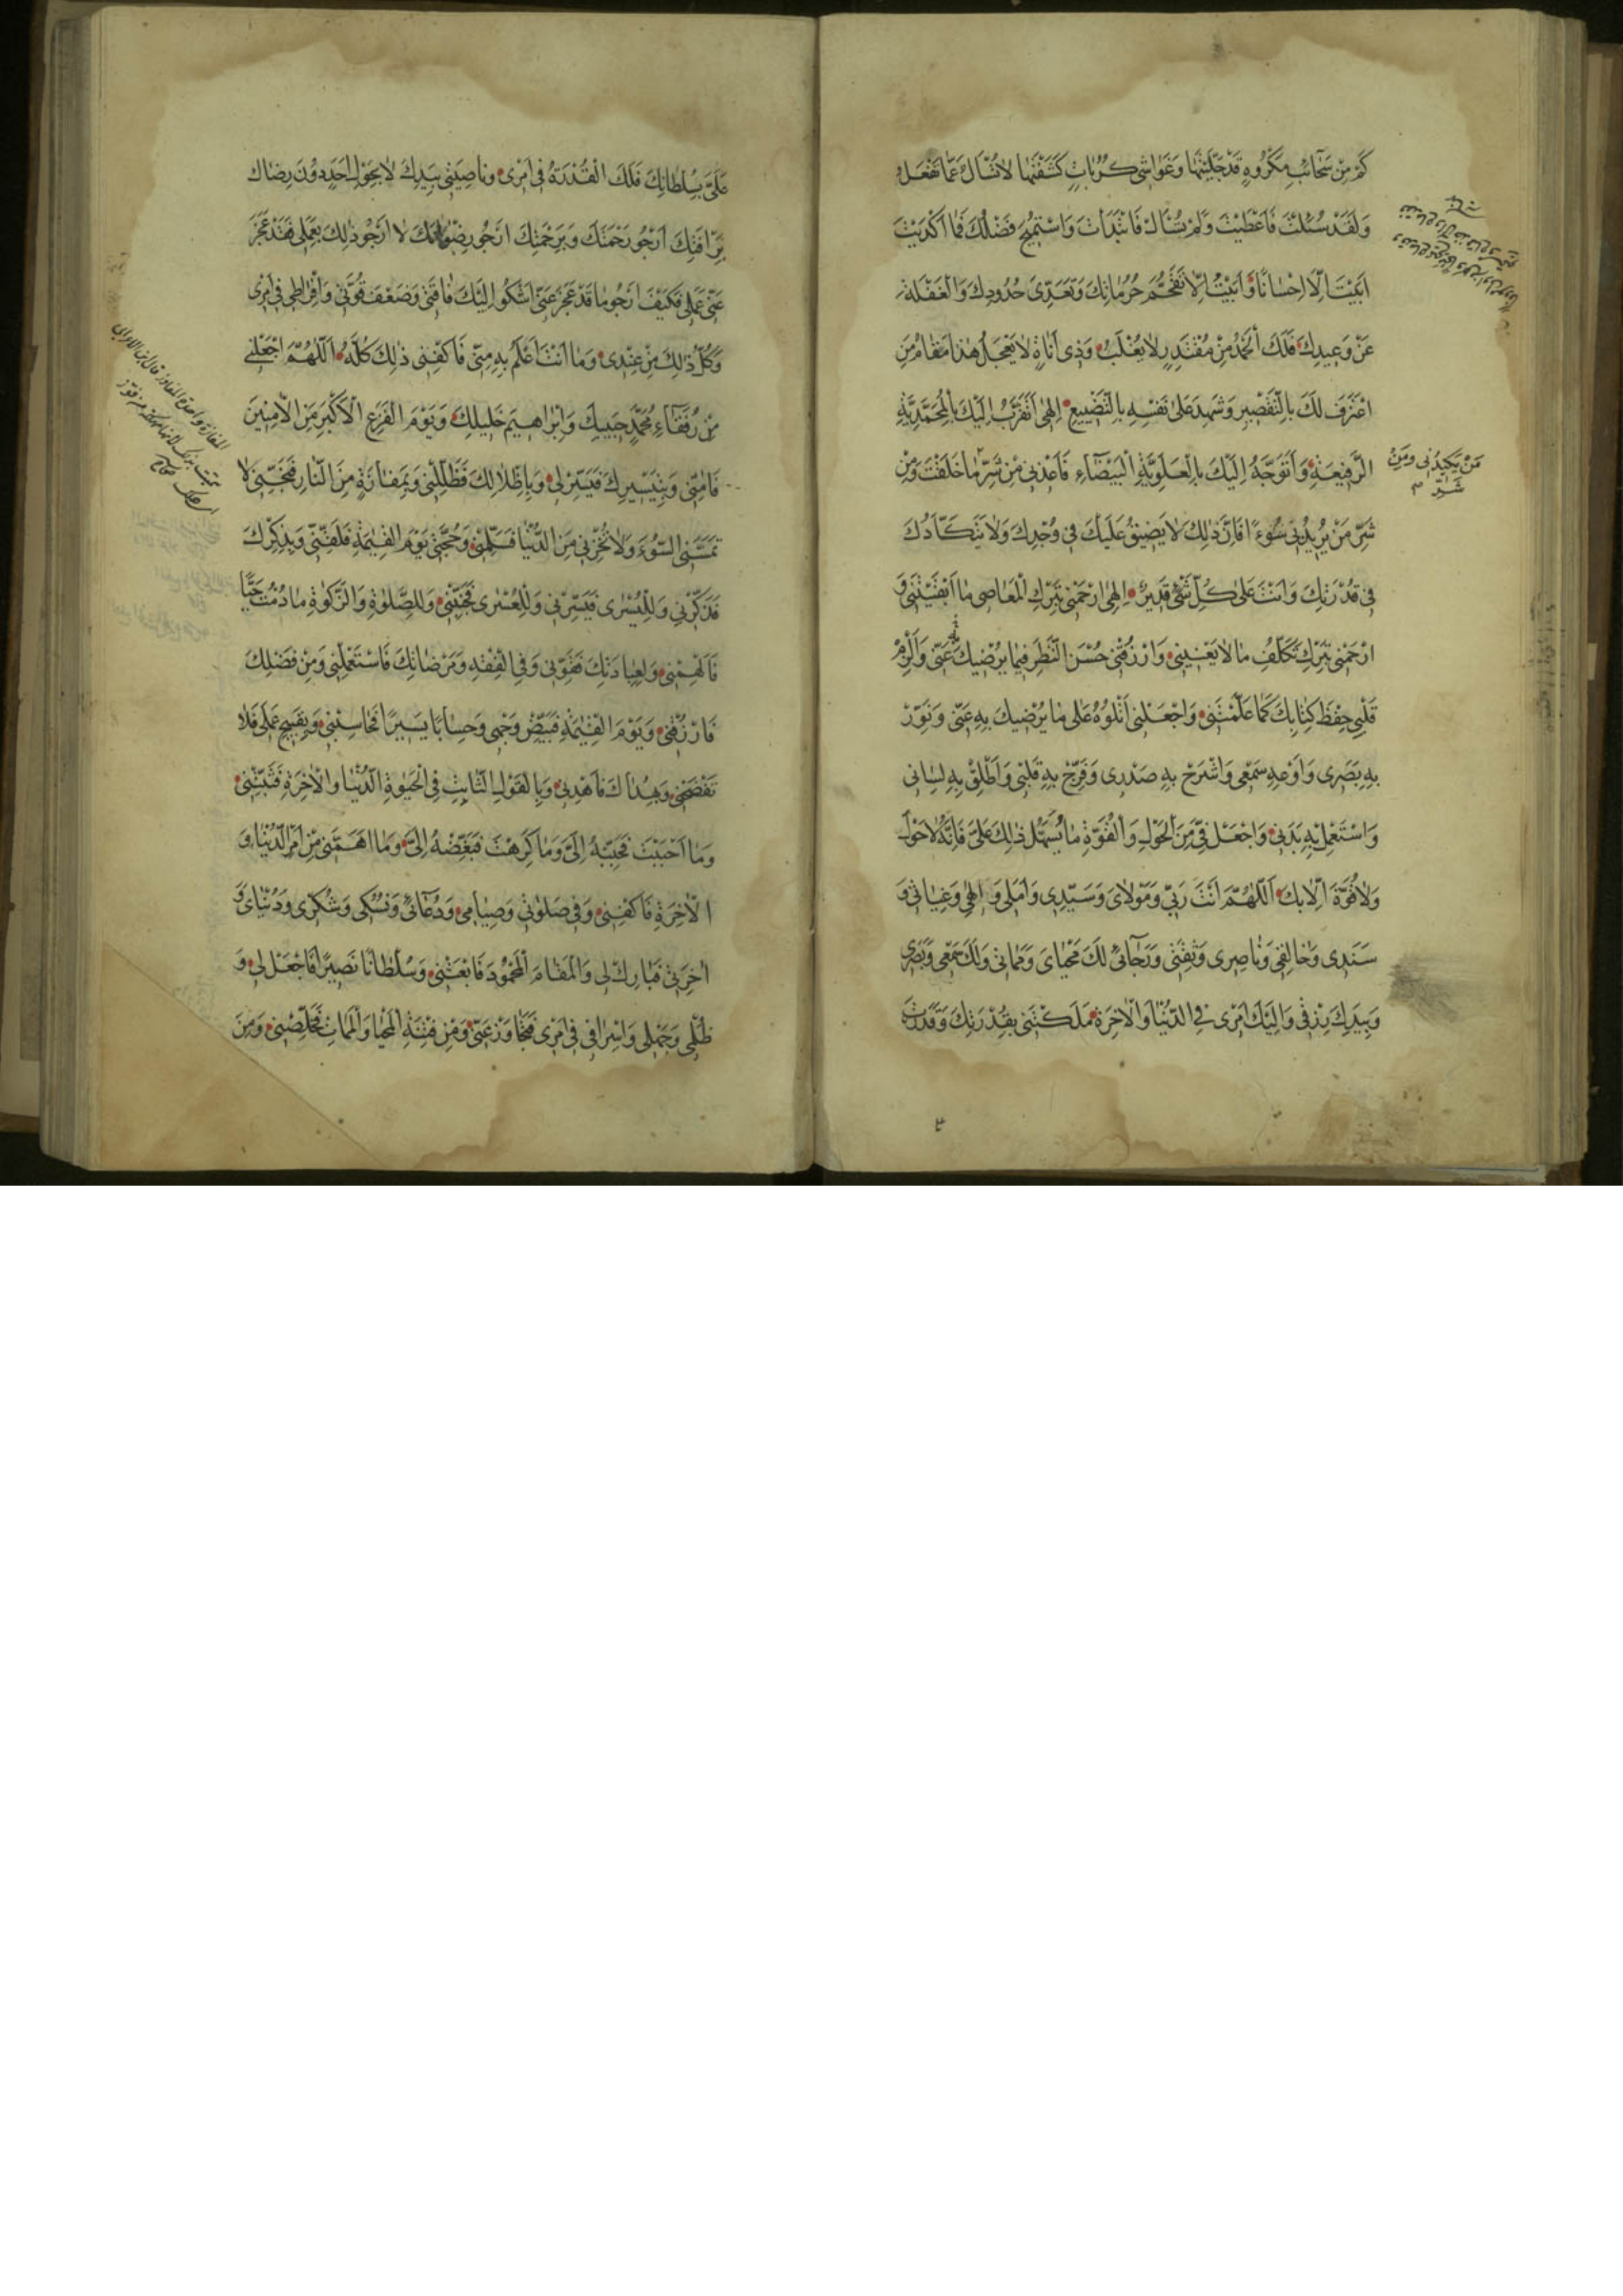 كَمْ مِنْ سَحَآئِبِ مَكْرُوهٍ قَدْ جَلَّيْتَهَا وَغَوَاشِى كُرُبَاتٍ كَشَفْتَهَا لاٰ تُسْأَلُ عَمَّا تَفْعَلُ
وَلَقَدْ سُئِلْتَ فَاَعْطَيْتَ وَلَمْ تُسْأَلْ فَابْتَدَأْتَ وَاسْتُمِيحَ فَضْلُكَ فَمَا اَكْدَيْتَ
اَبَيْتَ اِلّٰا اِحْسَانًا وَاَبَيْتُ اِلّٰا تَقَحُّمَ حُرُمَاتِكَ وَتَعَدِّىَ حُدُودِكَ وَالْغَفْلَةَ
عَنْ وَعِيدِكَ فَلَكَ اَلْحَمْدُ مِنْ مُقْتَدِرٍ لاٰ يُغْلَبُ وَذِى اَنَاةٍ لاٰ يَعْجَلُ هٰذَا مَقَامُ مَنِ
اعْتَرَفَ لَكَ بِالتَّقْصِيرِ وَشَهِدَ عَلىٰ نَفْسِهِ بِالتَّضْيِيعِ اِلٰهِى اَتَقَرَّبُ اِلَيْكَ بِالْمُحَمَّدِيَّةِ
الرَّفِيعَةِ وَاَتَوَجَّهُ اِلَيْكَ بِالْعَلَوِيَّةِ الْبَيْضَآءِ فَاَعِذْنِى مِنْ شَرِّ مَا خَلَقْتَ وَمِنْ
مَنْ يَكِيدُنِى وَمِنْ
شَرِّ
شَرِّ مَنْ يُرِيدُنِى سُوءً فَاِنَّ ذٰلِكَ لاٰ يَضِيقُ عَلَيْكَ فِى وُجْدِكَ وَلاٰ يَتَكَأَّدُكَ
فِى قُدْرَتِكَ وَاَنْتَ عَلىٰ كُلِّ شَىْءٍ قَدِيرٌ اِلٰهِى ارْحَمْنِى بِتَرْكِ الْمَعَاصِى مَا اَبْقَيْتَنِى وَ
ارْحَمْنِى بِتَرْكِ تَكَلُّفِ مَا لاٰ يَعْنِينِى وَارْزُقْنِى حُسْنَ النَّظَرِ فِيمَا يُرْضِيكَ عَنِّى وَاَلْزِمْ
قَلْبِى حِفْظَ كِتَابِكَ كَمَا عَلَّمْتَنِى وَاجْعَلْنِى اَتْلُوهُ عَلىٰ مَا يُرْضِيكَ بِهِ عَنِّى وَنَوِّرْ
بِهِ بَصَرِى وَاَوْعِهِ سَمْعِى وَاشْرَحْ بِهِ صَدْرِى وَفَرِّجْ بِهِ قَلْبِى وَاَطْلِقْ بِهِ لِسَانِى
وَاسْتَعْمِلْ بِهِ بَدَنِى وَاجْعَلْ فِىَّ مِنَ الْحَوْلِ وَالْقُوَّةِ مَا يُسَهِّلُ ذٰلِكَ عَلَىَّ فَاِنَّهُ لاٰ حَوْلَ
وَلاٰ قُوَّةَ اِلّٰا بِكَ اَللّٰهُمَّ اَنْتَ رَبِّى وَمَوْلاٰىَ وَسَيِّدِى وَاَمَلِى وَاِلٰهِى وَغِيَاثِى وَ
سَنَدِى وَخَالِقِى وَنَاصِرِى وَثِقَتِى وَرَجَآئِى لَكَ مَحْيَاىَ وَمَمَاتِى وَلَكَ سَمْعِى وَبَصَرِى
وَبِيَدِكَ رِزْقِى وَاِلَيْكَ اَمْرِى فِى الدُّنْيَا وَالْاٰخِرَةِ مَلَكْتَنِى بِقُدْرَتِكَ وَقَدَرْتَ
عَلَىَّ بِسُلْطَانِكَ فَلَكَ الْقُدْرَةُ فِى اَمْرِى وَنَاصِيَتِى بِيَدِكَ لاٰ يَحُولُ اَحَدٌ دُونَ رِضَاكَ
بِرَأْفَتِكَ اَرْجُو رَحْمَتَكَ وَبِرَحْمَتِكَ اَرْجُو رِضْوَانَكَ لاٰ اَرْجُو ذٰلِكَ بِعَمَلِى فَقَدْ عَجَزَ
عَنِّى عَمَلِى فَكَيْفَ اَرْجُو مَا قَدْ عَجَزَ عَنِّى اَشْكُو اِلَيْكَ فَاقَتِى وَضَعْفَ قُوَّتِى وَاِفْرَاطِى فِى اَمْرِى
وَكُلُّ ذٰلِكَ مِنْ عِنْدِى وَمَا اَنْتَ اَعْلَمُ بِهِ مِنِّى فَاكْفِنِى ذٰلِكَ كُلَّهُ اَللّٰهُمَّ اجْعَلْنِى
مِنْ رُفَقَآءِ مُحَمَّدٍ حَبِيبِكَ وَاِبْرَاهِيمَ خَلِيلِكَ وَيَوْمَ الْفَزَعِ الْاَكْبَرِ مِنَ الْاٰمِنِينَ
فَاٰمِنِّى وَبِتَيْسِيرِكَ فَيَسِّرْ لِى وَبِاِظْلاٰلِكَ فَظَلِّلْنِى وَبِمَفَازَةٍ مِنَ النَّارِ فَنَجِّنِى لاٰ
تَمَسَّنِى السُّوءُ وَلاٰ تُخْزِنِى مِنَ الدُّنْيَا فَسَلِّمْنِى وَحُجَّتِى يَوْمَ الْقِيٰمَةِ فَلَقِّنِّى وَبِذِكْرِكَ
فَذَكِّرْنِى وَلِلْيُسْرٰى فَيَسِّرْنِى وَلِلْعُسْرٰى فَجَنِّبْنِى وَلِلصَّلٰوةِ وَالزَّكٰوةِ مَا دُمْتُ حَيًّا
فَاَلْهِمْنِى وَلِعِبَادَتِكَ فَقَوِّنِى وَفِى الْفِقْهِ وَمَرْضَاتِكَ فَاسْتَعْمِلْنِى وَمِنْ فَضْلِكَ
فَارْزُقْنِى وَيَوْمَ الْقِيٰمَةِ فَبَيِّضْ وَجْهِى وَحِسَابًا يَسِيرًا فَحَاسِبْنِى وَبِقَبِيحِ عَمَلِى فَلاٰ
تَفْضَحْنِى وَبِهُدَاكَ فَاهْدِنِى وَبِالْقَوْلِ الثَّابِتِ فِى الْحَيٰوةِ الدُّنْيَا وَالْاٰخِرَةِ فَثَبِّتْنِى
وَمَا اَحْبَبْتَ فَحَبِّبْهُ اِلَىَّ وَمَا كَرِهْتَ فَبَغِّضْهُ اِلَىَّ وَمَا اَهَمَّنِى مِنْ اَمْرِ الدُّنْيَا وَ
الْاٰخِرَةِ فَاكْفِنِى وَفِى صَلٰوتِى وَصِيَامِى وَدُعَآئِى وَنُسُكِى وَشُكْرِى وَدُنْيَاىَ وَ
اٰخِرَتِى فَبَارِكْ لِى وَالْمَقَامَ الْمَحْمُودَ فَابْعَثْنِى وَسُلْطَانًا نَصِيرًا فَاجْعَلْ لِى وَ
ظُلْمِى وَجَهْلِى وَاِسْرَافِى فِى اَمْرِى فَتَجَاوَزْ عَنِّى وَمِنْ فِتْنَةِ الْمَحْيَا وَالْمَمَاتِ فَخَلِّصْنِى وَمِنَ
المفازة واحدة المفاوز قال ابن الاعرابى